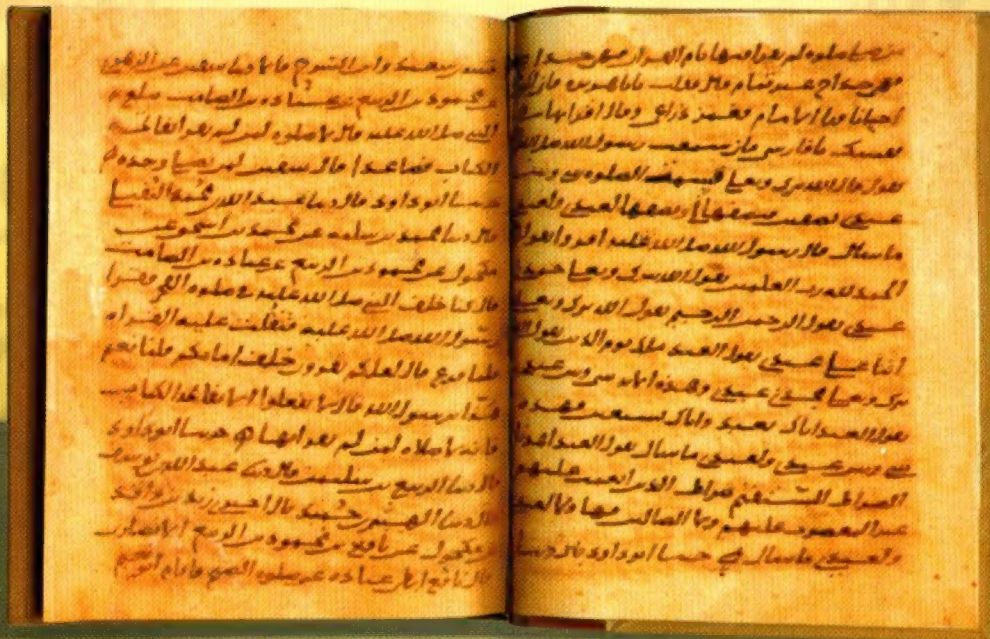 من صلى صلوه لم يقرا فيها بام القران فهي خداج
فهي خداج غير تمام قال فقلت يابا هريره فاني
احيانا ورا الامام فغمز ذراعي وقال اقرا بها في
نفسك يا فارسي فاني سمعت رسول الله صلى الله
يقول قال الله تبرك وتعلى قسمت الصلوه بيني وبين
عبدي نصفين فنصفها لي ونصفها لعبدي ولعبدي
ما سال قال رسول الله صلى الله عليه اقروا يقول
الحمد لله رب العلمين يقول الله تبرك وتعلى حمدني
عبدي يقول الرحمن الرحيم يقول الله تبرك وتعلى
اثنا علي عبدي يقول العبد ملك يوم الدين يقول الله
تبرك وتعلى مجدني عبدي وهذه الايه بيني وبين عبدي
يقول العبد اياك نعبد واياك نستعين فهذه
بيني وبين عبدي ولعبدي ما سال يقول العبد اهدنا
الصراط المستقيم صراط الذين انعمت عليهم
غير المغضوب عليهم ولا الضالين فهاولا لعبدي
ولعبدي ما سال حدسا ابو داود قال حدسا
قتيبه بن سعيد وابن السرح قالا دنا سفين عن الزهري
عن محمود بن الربيع عن عباده بن الصامت يبلغ به
النبي صلى الله عليه قال لا صلوه لمن لم يقرا بفاتحه
الكتاب فصاعدا قال سفين لمن يصلي وحده
حدسا ابو داود قال دنا عبد الله بن محمد النفيلي
قال دنا محمد بن سلمه عن محمد بن اسحق عن
مكحول عن محمود بن الربيع عن عباده بن الصامت
قال كنا خلف النبي صلى الله عليه في صلوه الفجر فقرا
رسول الله صلى الله عليه فثقلت عليه القراه
فلما فرغ قال لعلكم تقرون خلف امامكم قلنا نعم
هذا يرسول الله قال لا تفعلوا الا بفاتحه الكتاب
فانه لا صلاه لمن لم يقرا بها حدسا ابو داود
قال دنا الربيع بن سليمن قال دنا عبد الله بن يوسف
قال دنا الهيثم بن حميد قال اخبرني زيد بن واقد
عن مكحول عن نافع بن محمود بن الربيع الانصاري
قال نافع ابطا عباده عن صلوه الصبح فاقام ابو نعيم